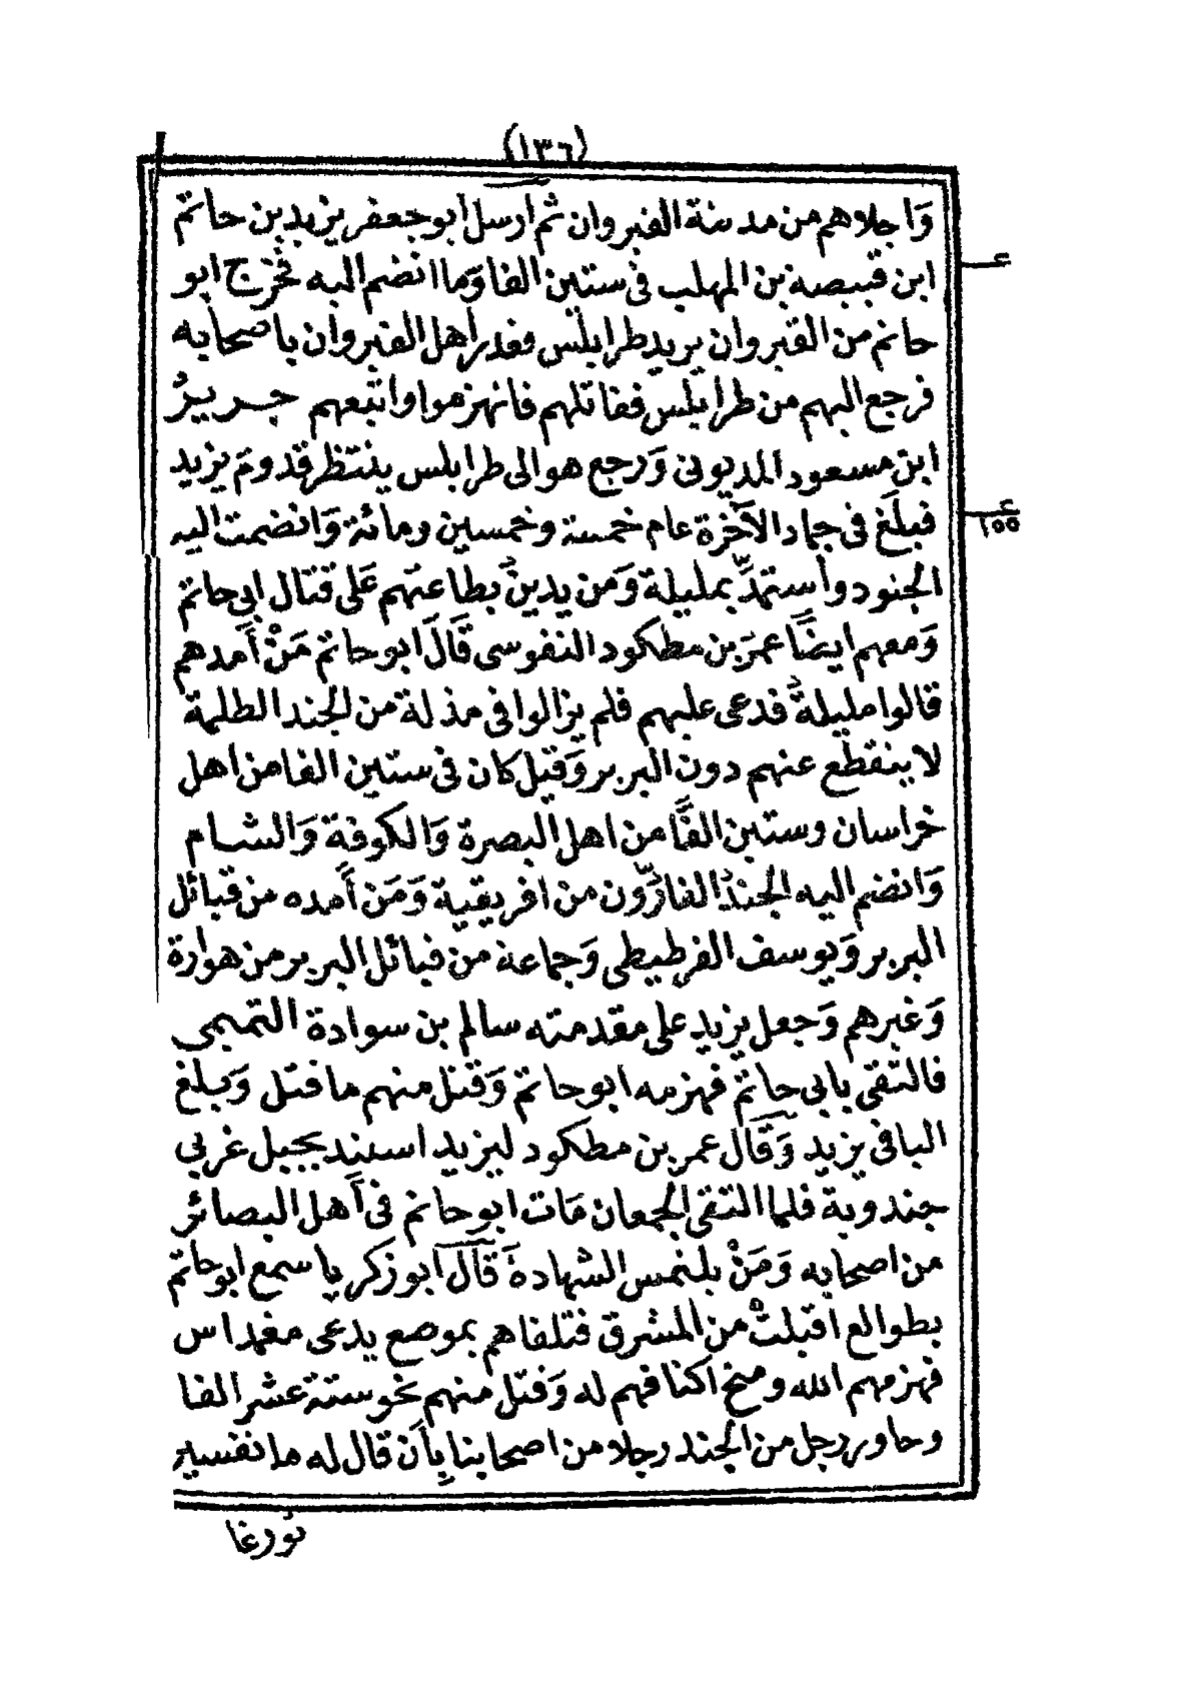 (١٣٦)
وَاجلاهم من مدينة القيروان ثم ارسل ابو جعفر يزيد بن حاتم
ابن قبيصة بن المهلب فى ستين الفا وَما انضم اليه فخرج ابو
حاتم من القيروان يريد طرابلس فغدر اهل القيروان باصحابه
فرجع اليهم من طرابلس فقاتلهم فانهزموا واتبعهم جرير
ابن مسعود المديونى وَرجع هو الى طرابلس ينتظر قدومَ يزيد
فبلغ فى جماد الآخرة عام خمسة وخمسين ومائة وَانضمت اليه
الجنود واستمدّ بمليلة وَمن يدين بطاعتهم عَلى قتال ابى حاتم
وَمعهم ايضًا عمرَ بن مطكود النفوسى قَالَ ابو حاتم مَنْ أَمدهم
قالوا مليلة فدعى عليهم فلم يزالوا فى مذلة من الجند الظلمة
لا ينقطع عنهم دون البربر وَقيل كان فى ستين الفا من اهل
خراسان وستين الفًا من اهل البصرة وَالكوفة وَالشام
وَانضم اليه الجند الفارّون من افريقية وَمَن أَمده من قبائل
البربر وَيوسف الفرطيطى وَجماعة من قبائل البربر من هوارة
وَغيرهم وَجعل يزيد على مقدمته سالم بن سوادة التميمى
فالتقى بابى حاتم فهزمه ابو حاتم وَقتل منهم ما قتل وَبلغ
الباقى يزيد وَقَال عمر بن مطكود ليزيد استند بجبل غربي
جندوبة فلما التقى الجمعان مَات ابو حاتم فى أَهل البصائر
من اصحابه وَمَنْ يلتمس الشهادة قَالَ ابو زكريا سمع ابو حاتم
بطوالع اقبلتْ من المشرق فتلقاهم بموضع يدعى مغمداس
فهزمهم الله ومنح اكتافهم له وَقتل منهم نحو ستة عشر الفا
وحاور رجل من الجند رجلا من اصحابنا بِأَن قال له ما تفسير
تورغا
ع
ع
١٥٥